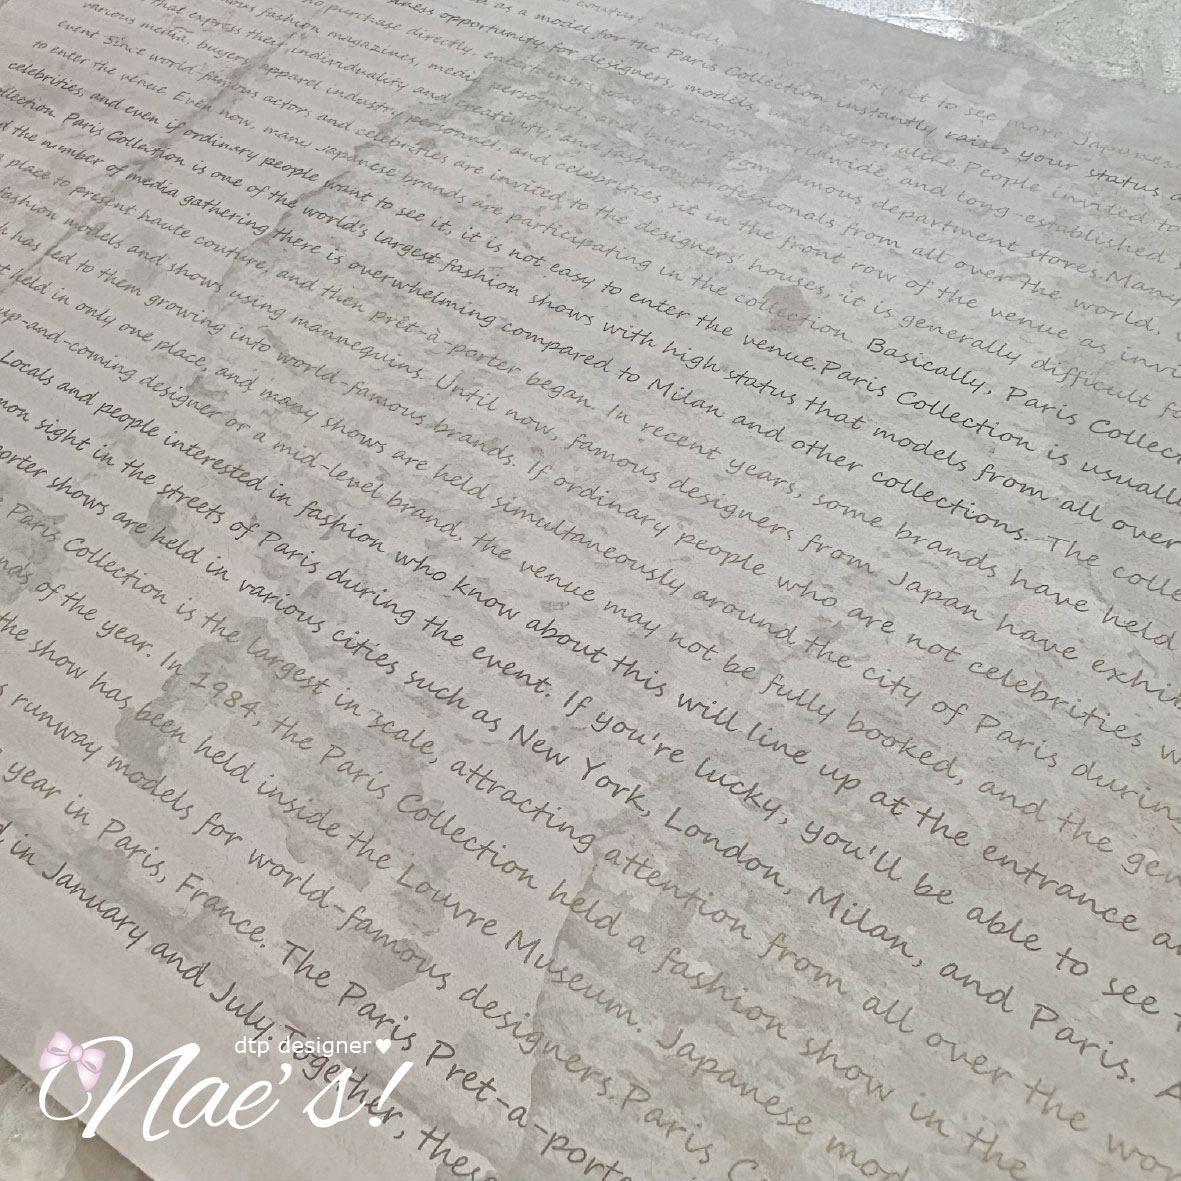 couture models.
as a model for the Paris Collection instantly raises your status
ness opportunity for designers, models, and buyers alike. People invited to
purchase directly, entertainers who are known worldwide, and long-established
famous fashion magazines, media personnel, and buyers from famous department stores. Many
that express their individuality and creativity, and fashion professionals from all over the world.
various media, buyers, apparel industry personnel, and celebrities sit in the front row of the venue as
event. Since world famous actors and celebrities are invited to the designers' houses, it is generally difficult
to enter the venue. Even now, many Japanese brands are participating in the collection. Basically, Paris
celebrities, and even if ordinary people want to see it, it is not easy to enter the venue. Paris Collection is
Paris Collection is one of the world's largest fashion shows with high status that models from all over
the number of media gathering there is overwhelming compared to Milan and other collections. The
place to present haute couture, and then prêt-à-porter began. In recent years, some brands have held
fashion models and shows using mannequins. Until now, famous designers from Japan have
has led to them growing into world-famous brands. If ordinary people who are not celebrities
held in only one place, and many shows are held simultaneously around the city of Paris
up-and-coming designer or a mid-level brand, the venue may not be fully booked, and the
Locals and people interested in fashion who know about this will line up at the entrance
sight in the streets of Paris during the event. If you're lucky, you'll be able to see
shows are held in various cities such as New York, London, Milan, and Paris.
Paris Collection is the largest in scale, attracting attention from all over the
of the year. In 1984, the Paris Collection held a fashion show in the
the show has been held inside the Louvre Museum. Japanese
runway models for world-famous designers. Paris
year in Paris, France. The Paris Pret-a-porte
in January and July. Together,
dtp designer♥
Nae's!